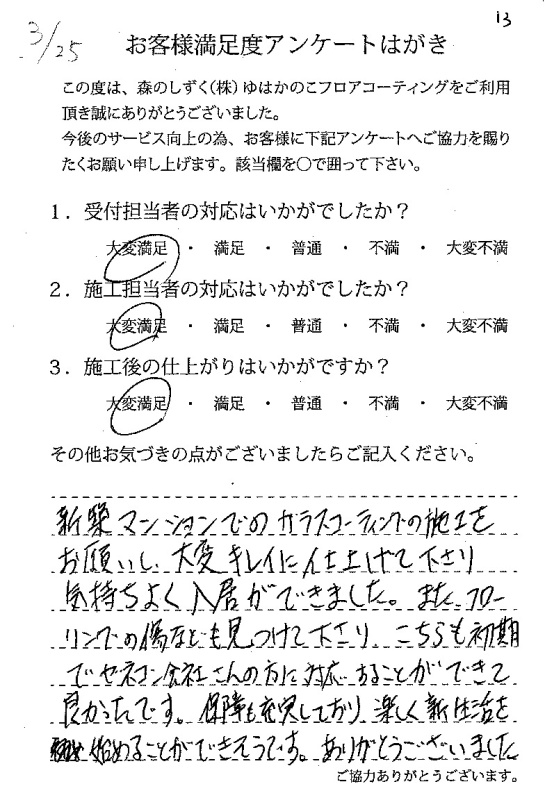 13
3/25
お客様満足度アンケートはがき
この度は、森のしずく(株)ゆはかのこフロアコーティングをご利用
頂き誠にありがとうございました。
今後のサービス向上の為、お客様に下記アンケートへご協力を賜り
たくお願い申し上げます。該当欄を〇で囲って下さい。
1．受付担当者の対応はいかがでしたか？
大変満足 ・ 満足 ・ 普通 ・ 不満 ・ 大変不満
2．施工担当者の対応はいかがでしたか？
大変満足 ・ 満足 ・ 普通 ・ 不満 ・ 大変不満
3．施工後の仕上がりはいかがですか？
大変満足 ・ 満足 ・ 普通 ・ 不満 ・ 大変不満
その他お気づきの点がございましたらご記入ください。
新築マンションでのガラスコーティングの施工を
お願いし、大変キレイに仕上げて下さり
気持ちよく入居ができました。また、フロー
リングの傷なども見つけて下さり、こちらも初期
でゼネコン会社さんの方に対応することができて
良かったです。保障も充実しており、楽しく新生活を
始めることができそうです。ありがとうございました
ご協力ありがとうございます。